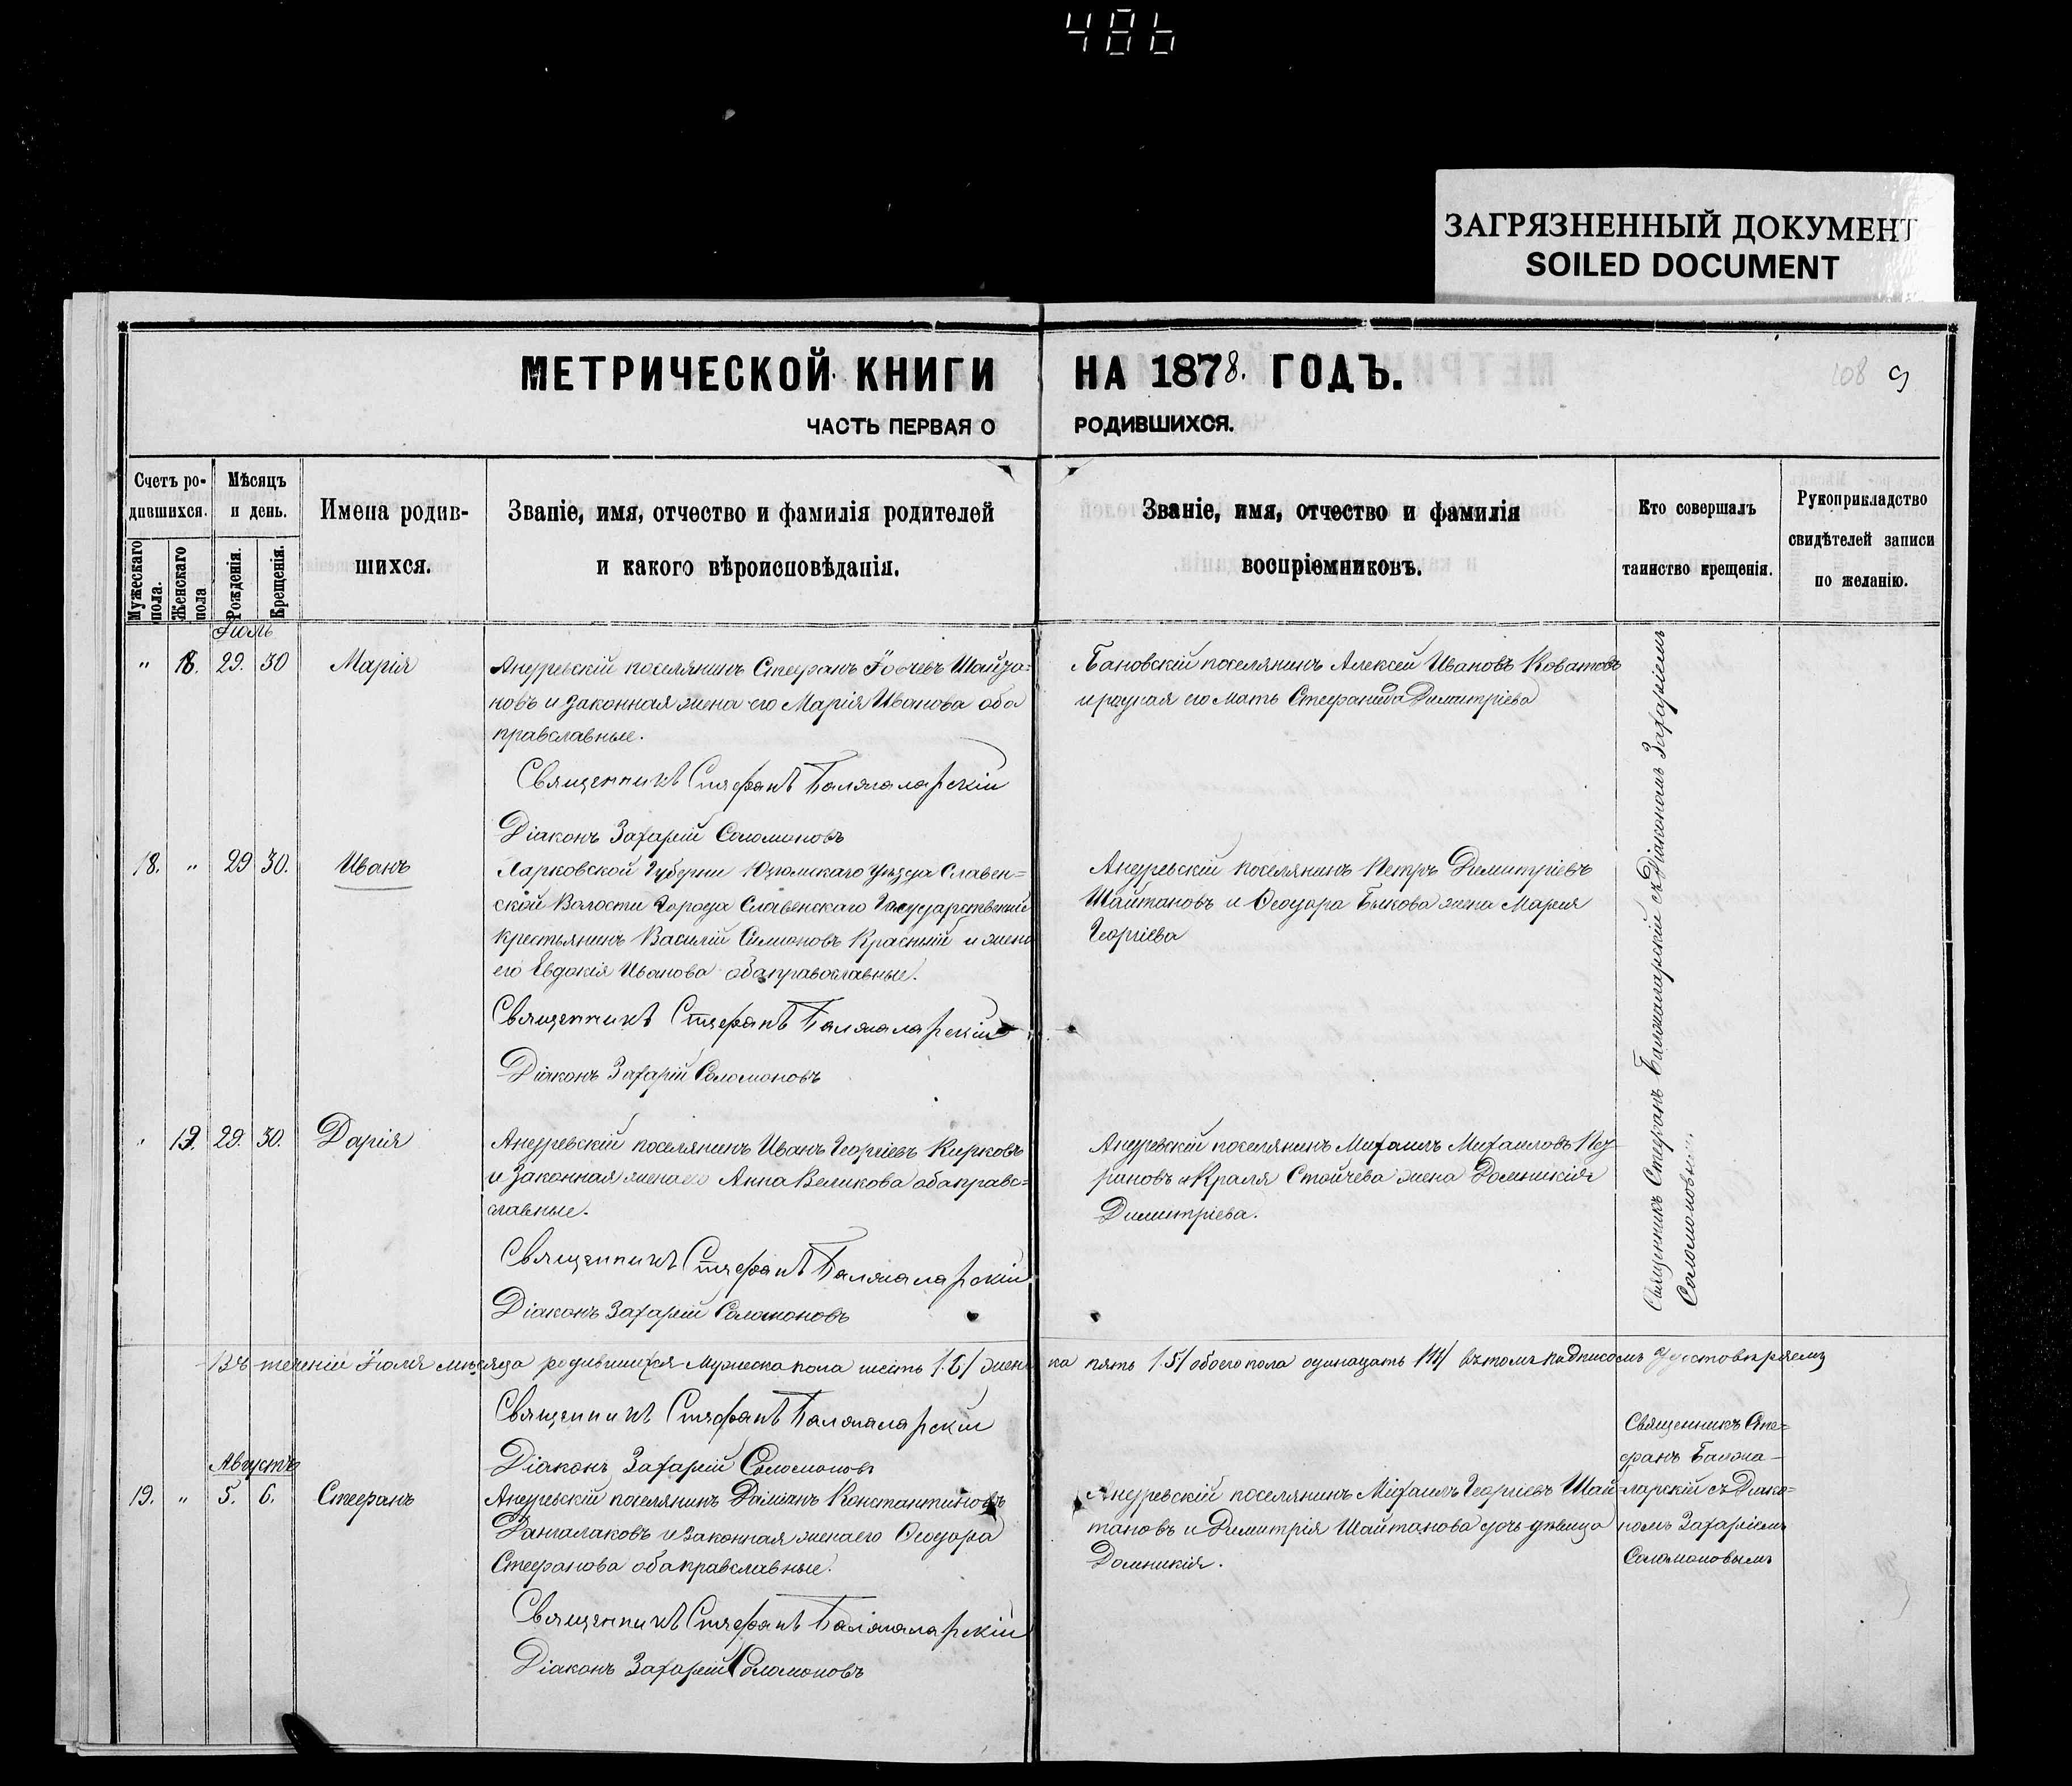 486
ЗАГРЯЗНЕННЫЙ ДОКУМЕНТ
SOILED DOCUMENT
МЕТРИЧЕСКОЙ КНИГИ НА 1878. ГОДЪ.
108 9
ЧАСТЬ ПЕРВАЯ О РОДИВШИХСЯ.
Счетъ ро-
дившихся.
Мужескаго пола.
Женскаго пола
Мѣсяцъ
и день.
Рожденія.
Крещенія.
Имена родив-
шихся.
Званіе, имя, отчество и фамилія родителей
и какого вѣроисповѣданія.
Званіе, имя, отчество и фамилія
воспріемниковъ.
Кто совершалъ
таинство крещенія.
Рукоприкладство
свидѣтелей записи
по желанію.
Іюль
" 18. 29. 30 Марія
поселянинъ Стефанъ
новъ и законная жена его Марія Иванова оба
православные.
Священникъ Стефанъ Балжаларскій
Діаконъ Захарій Соломоновъ
поселянинъ Алексей Ивановъ Коватовъ
и родная его мать Димитріева
18. " 29 30. Иванъ
Харковской Губерни Изюмскаго Уѣзда Славен=
ской Волости Города Славенскаго Государственый
крестьянинъ Василій Симионовъ Красный и жена
его Евдокія Иванова оба православные.
Священникъ Стефанъ Балжаларскій
Діаконъ Захарій Соломоновъ
поселянинъ Петръ Димитріевъ
Шайтановъ и Ѳеодора Быкова жена Мария
Георгіева
" 19. 29. 30. Дарія
поселянинъ Иванъ Георгіевъ Кирковъ
и Законная жена его Анна Великова оба право=
славные.
Священникъ Стефанъ Балжаларскій
Діаконъ Захарій Соломоновъ
поселянинъ Михаилъ Михаиловъ
и Краля Стойчева жена Домникія
Димитріева.
Священникъ Стефанъ Балжаларскій съ Діакономъ Захаріемъ
Соломоновымъ
Въ теченіи Іюля мѣсяца родившихся Мужеска пола шесть /6/ женска пять /5/ обоего пола одинацать /11/ въ томъ подписомъ удостовѣряемъ
Священникъ Стефанъ Балжаларскій
Діаконъ Захарій Соломоновъ
Августъ
19. " 5. 6. Стефанъ
поселянинъ Даміанъ Константиновъ
Дангалаковъ и законная жена его Ѳеодора
Стефанова оба православные.
Священникъ Стефанъ Балжаларскій
Діаконъ Захарій Соломоновъ
поселянинъ Михаилъ Георгіевъ Шай-
тановъ и Димитрія Шайтанова дочь дѣвица
Домникія.
Священникъ Сте=
фанъ Балжа-
ларскій съ Діако=
номъ Захаріемъ
Соломоновымъ